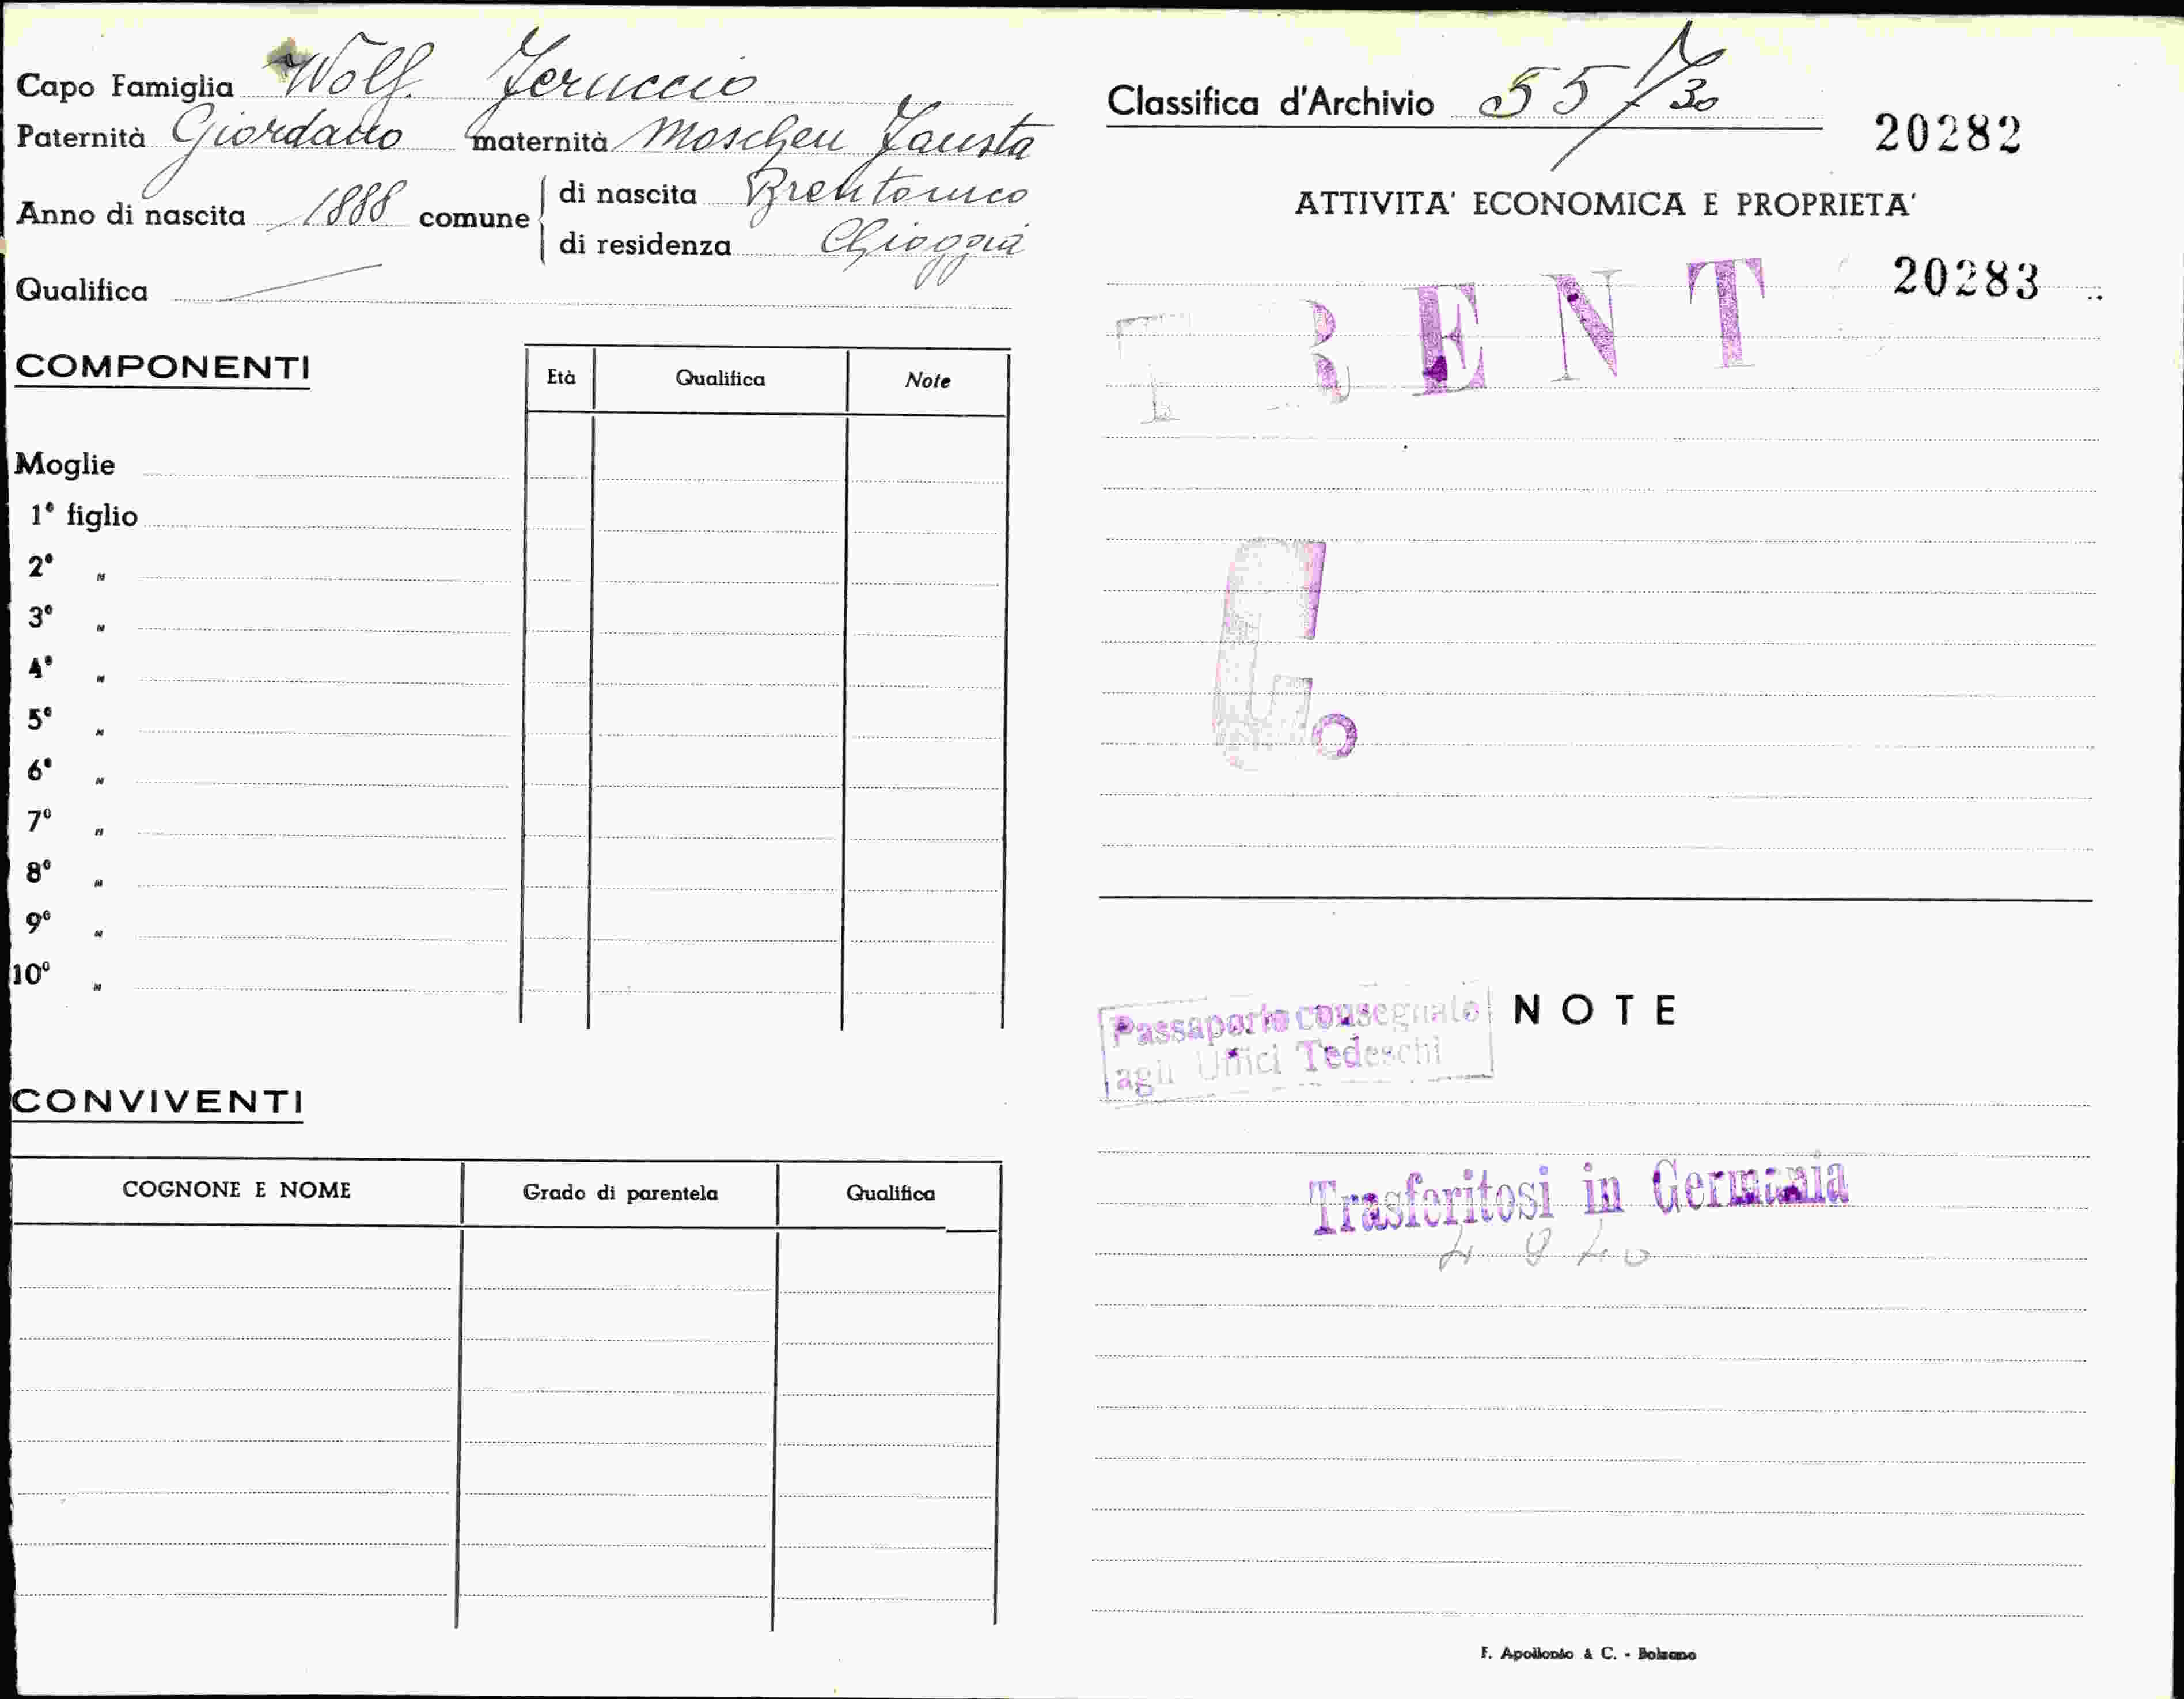 Capo Famiglia Wolf Feruccio
Paternità Giordano maternità Moscheu Fausta
Anno di nascita 1888 comune
di nascita Brentonico
di residenza Chioggia
Qualifica
COMPONENTI
Età Qualifica Note
Moglie
1º figlio
2º "
3º "
4º "
5º "
6º "
7º "
8º "
9º "
10º "
CONVIVENTI
COGNONE E NOME Grado di parentela Qualifica
Classifica d'Archivio 55
30
20282
ATTIVITA' ECONOMICA E PROPRIETA'
20283
TRENT
G.
Passaporto consegnato
agli Uffici Tedeschi
NOTE
Trasferitosi in Germania
F. Apollonio & C. - Bolzano